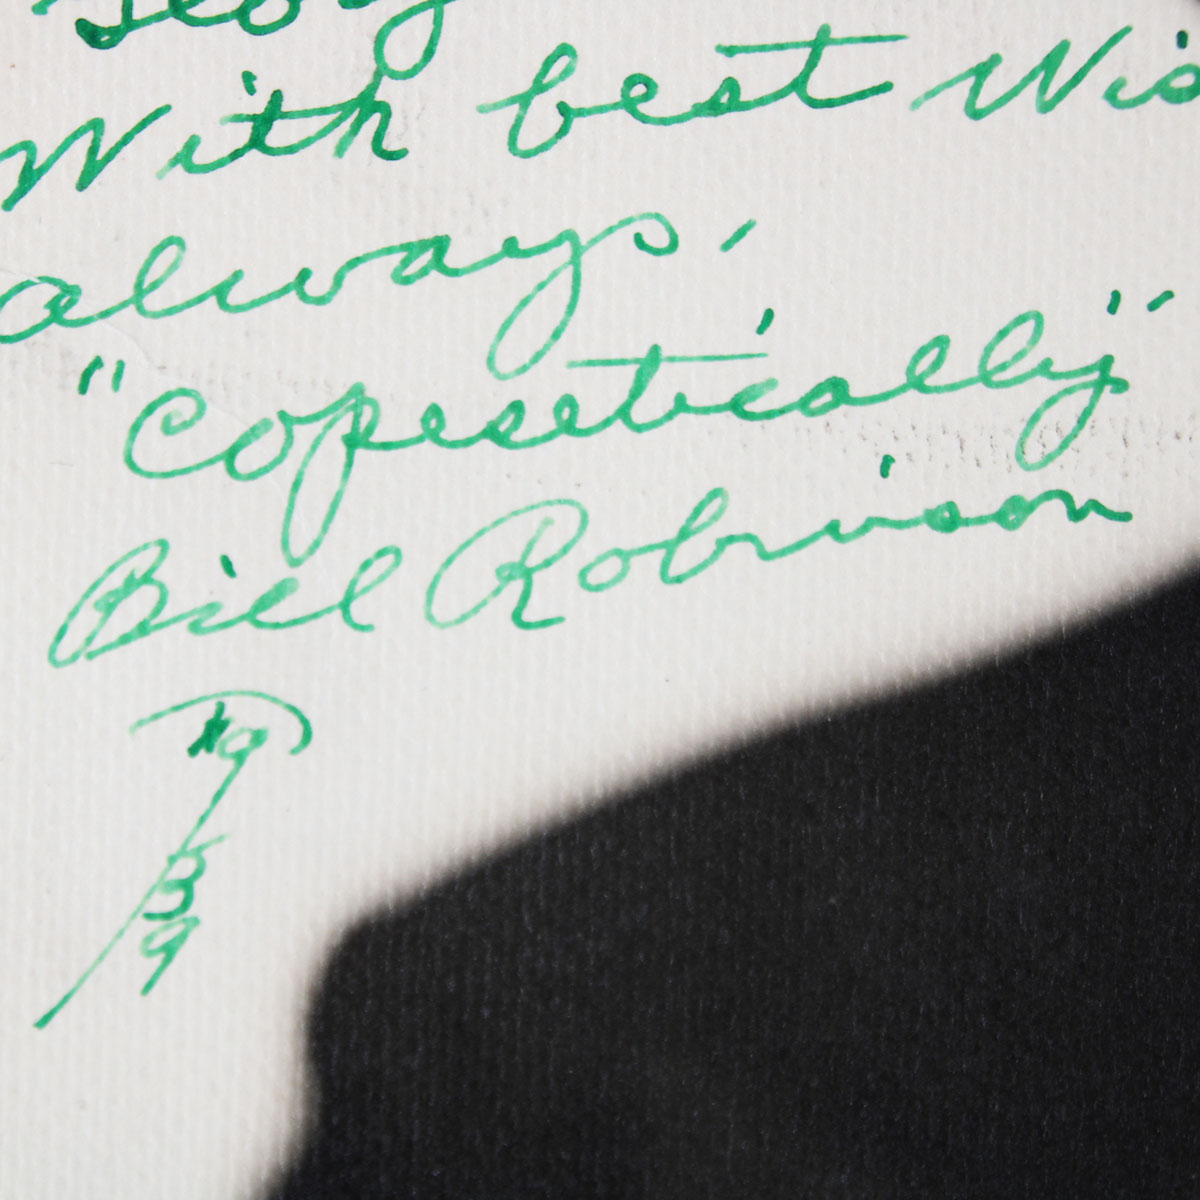 With best Wis
always,
"Copesetically"
Bill Robinson